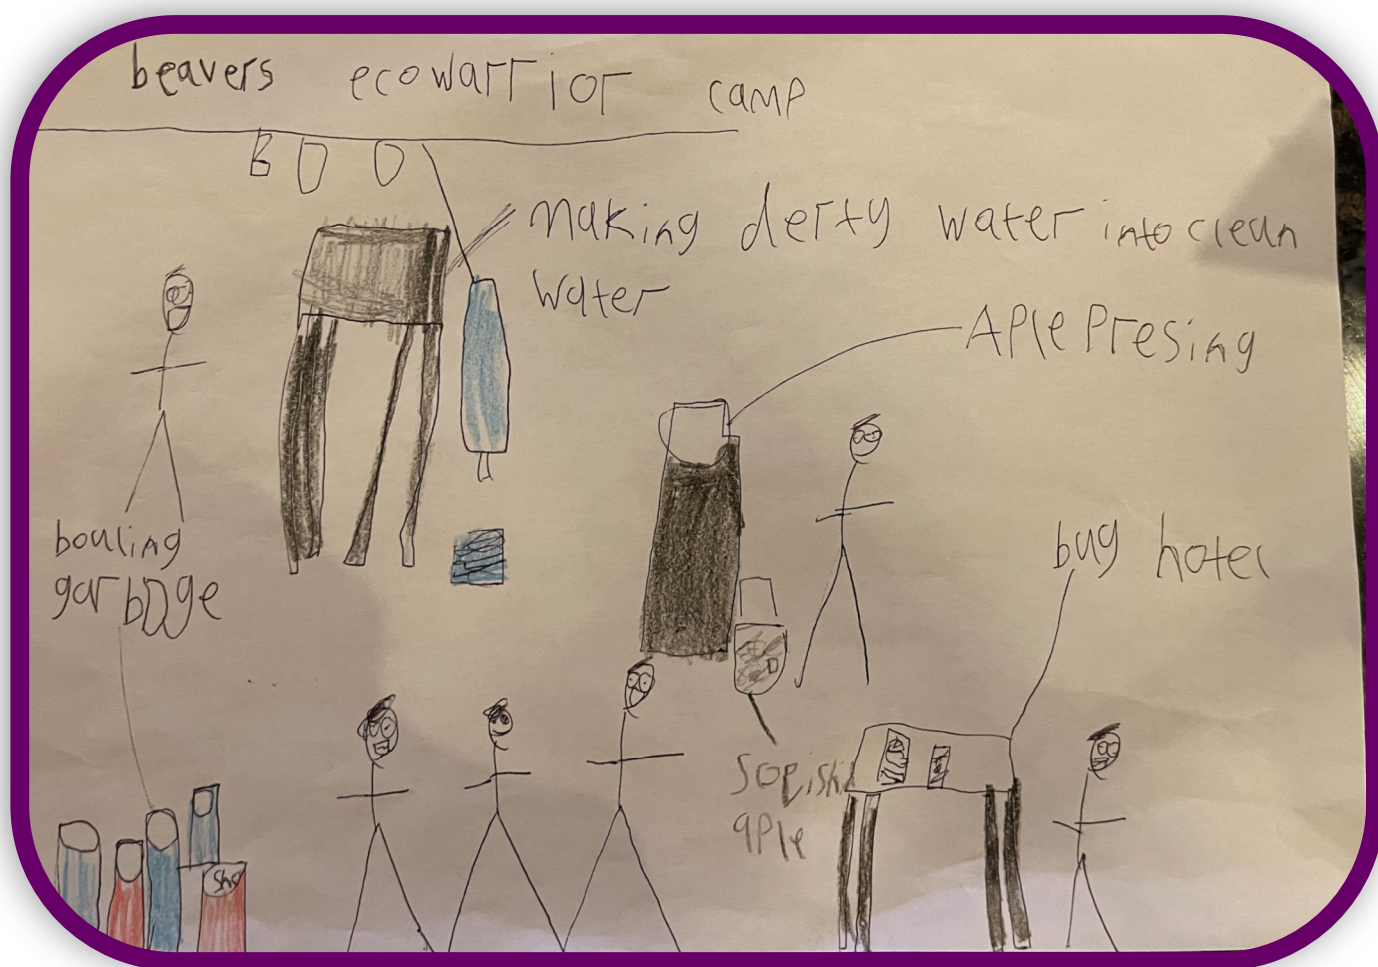 beavers ecowarrior camp
making derty water into clean
water
APle Presing
bouling
garbage
bug hotel
aple